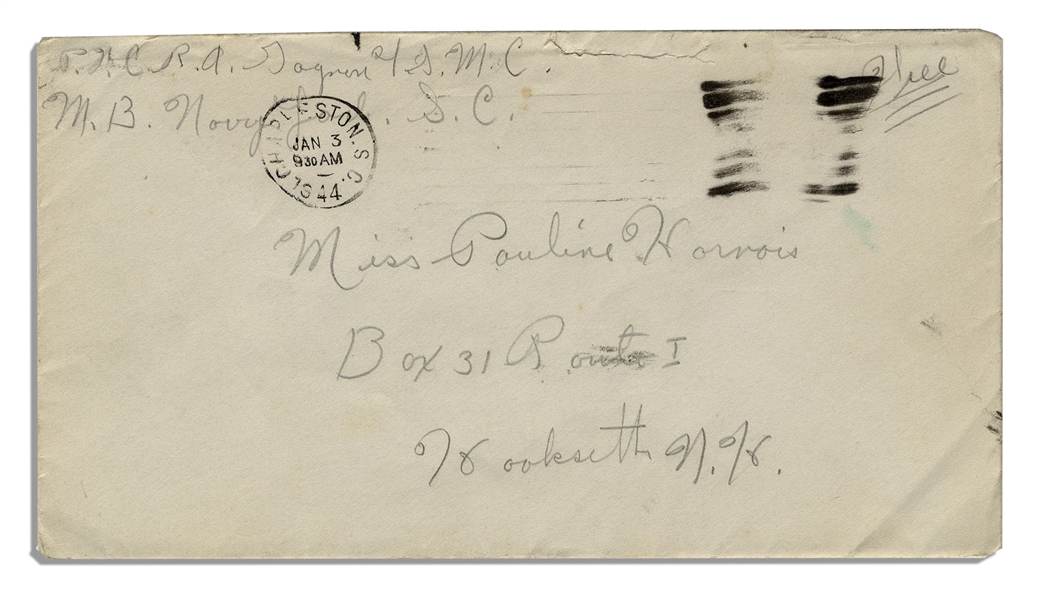 P.F.C. R.A. Gagnon U.S.M.C.
M.B. Navy S.C.
Free
CHARLESTON, S.C.
JAN 3
9 30 AM
1944
Miss Pauline Harnois
Box 31 Route I
Hooksett N.H.